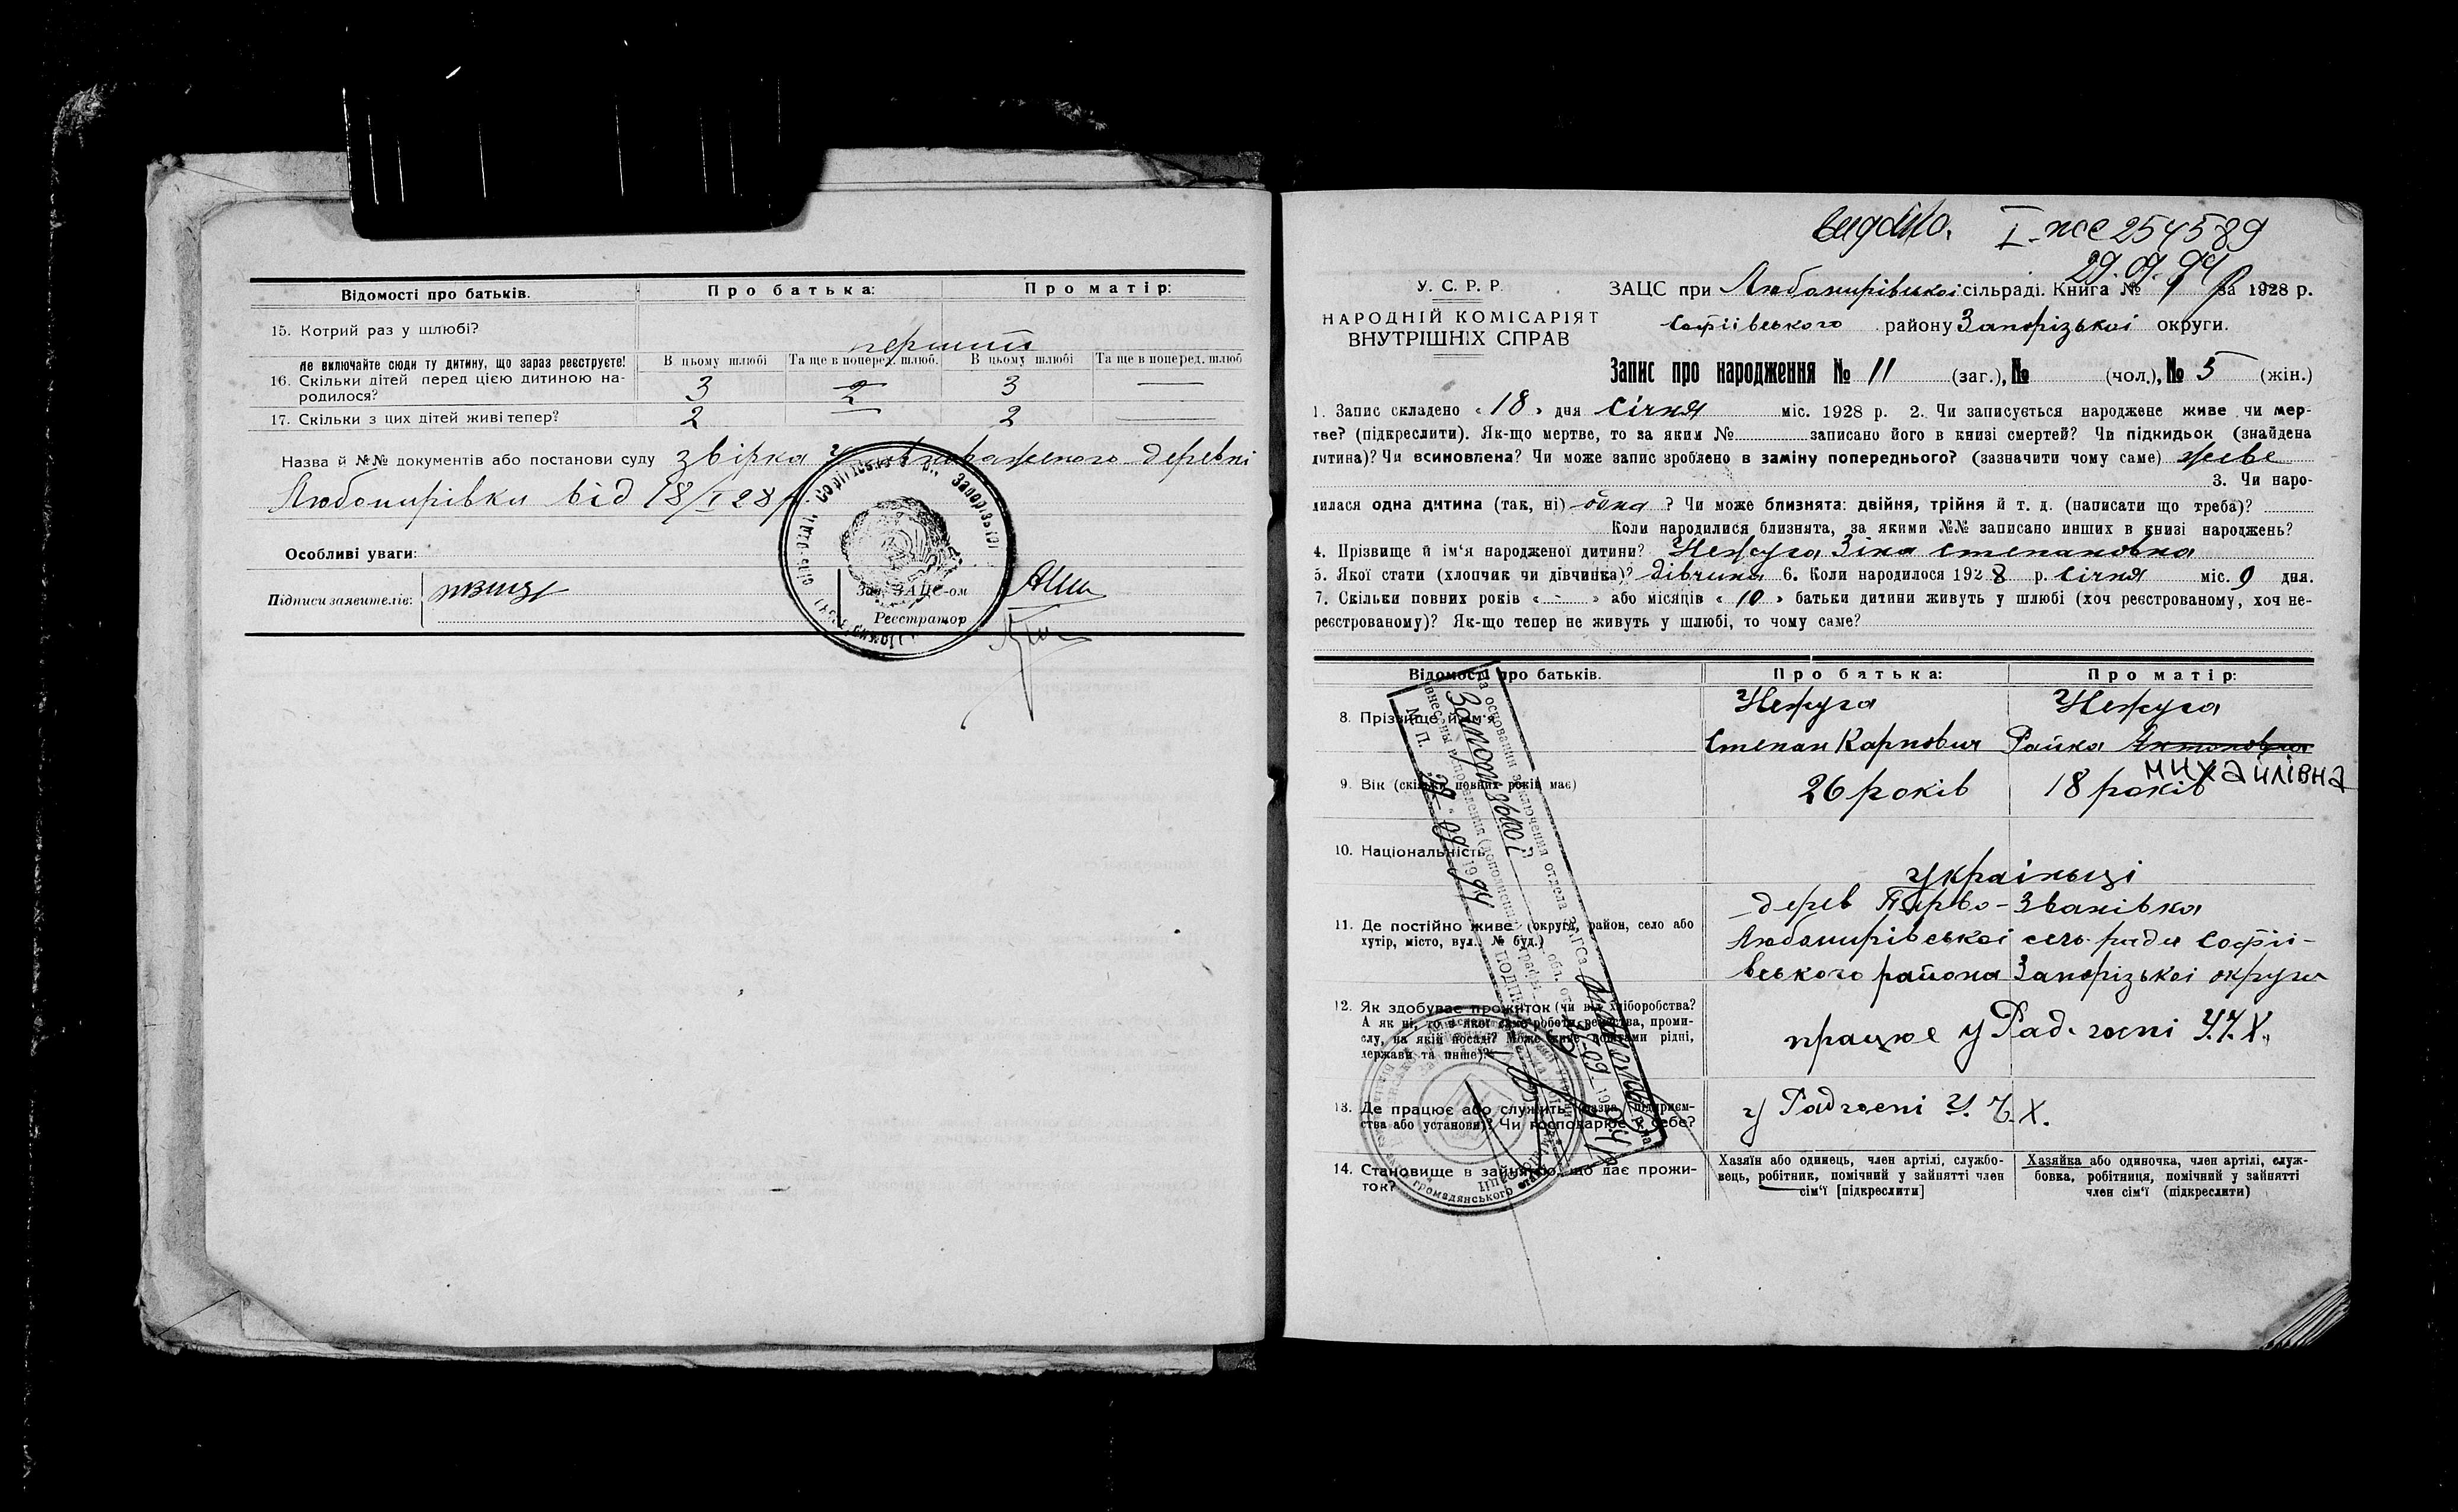 Відомості про батьків. Про батька: Про матір:
15. Котрий раз у шлюбі? перший
Не включайте сюди ту дитину, що зараз реєструєте! В цьому шлюбі Та ще в поперед. шлюб. В цьому шлюбі Та ще в поперед. шлюб
16. Скільки дітей перед цією дитиною на- 3 2 3 —
родилося?
17. Скільки з цих дітей живі тепер? 2 — 2 —
Назва й №№ документів або постанови суду звірка деревні
Любомирівки від 18/I 28 р.
Особливі уваги:
Підписи заявителів:
Зав. ЗАЦС-ом
Реєстратор
видано. I-жс 254589
29.09.94 р
У. С. Р. Р.
НАРОДНІЙ КОМІСАРІЯТ
ВНУТРІШНІХ СПРАВ
ЗАЦС при Любомирівській сільраді. Книга № 1 за 1928 р.
Софіївського району Запорізької округи.
Запис про народження № 11 (заг.), № (чол.), № 5 (жін.)
1. Запис складено «18» дня січня міс. 1928 р. 2. Чи записується народжене живе чи мер-
тве? (підкреслити). Як-що мертве, то за яким № записано його в книзі смертей? Чи підкидьок (знайдена
дитина)? Чи всиновлена? Чи може запис зроблено в заміну попереднього? (зазначити чому саме) живе
3. Чи наро-
дилася одна дитина (так, ні) одна ? Чи може близнята: двійня, трійня й т. д. (написати що треба)?
Коли народилися близнята, за якими №№ записано инших в книзі народжень?
4. Прізвище й ім'я народженої дитини? Нежура Зіна Степановна
5. Якої стати (хлопчик чи дівчинка)? дівчина 6. Коли народилося 1928 р. січня міс. 9 дня.
7. Скільки повних років « - » або місяців « 10 » батьки дитини живуть у шлюбі (хоч реєстрованому, хоч не-
реєстрованому)? Як-що тепер не живуть у шлюбі, то чому саме?
Відомості про батьків. Про батька: Про матір:
8. Прізвище й ім'я Нежура Нежура
Степан Карпович Райка Антоновна
михайлівна
9. Вік (скільки повних років має) 26 років 18 років
10. Національність українці
11. Де постійно живе (округа, район, село або
хутір, місто, вул., № буд.)
дерев Перво-Званівка
Любомирівської сель ради Софії-
вського района Запорізької округи
12. Як здобуває прожиток (чи від хліборобства?
А як ні, то з якої саме роботи, ремества, проми-
слу, на якій посаді? Може живе коштами рідні,
держави та инше)?
працює у Радгоспі У.Т.Х.
13. Де працює або служить (назва підприєм-
ства або установи)? Чи господарює у себе?
у Радгоспі У. Т. Х.
14. Становище в зайняттю, що дає прожи-
ток?
Хазяїн або одинець, член артілі, службо-
вець, робітник, помічний у зайнятті член
сім'ї [підкреслити]
Хазяйка або одиночка, член артілі, служ-
бовка, робітниця, помічний у зайнятті
член сім'ї (підкреслити)
На основании заключения отдела ЗАГСа
Запорізької обл. от 27-09 1994
внесены исправления (дополнения) в графы
М. П. 29 09 1994